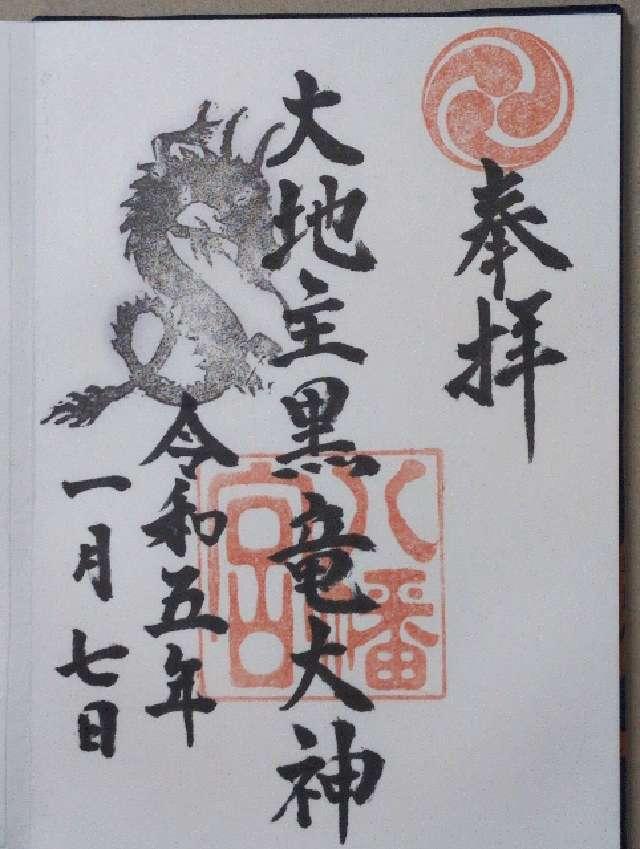 奉拝
大地主黒竜大神
八幡宮
令和五年
一月七日